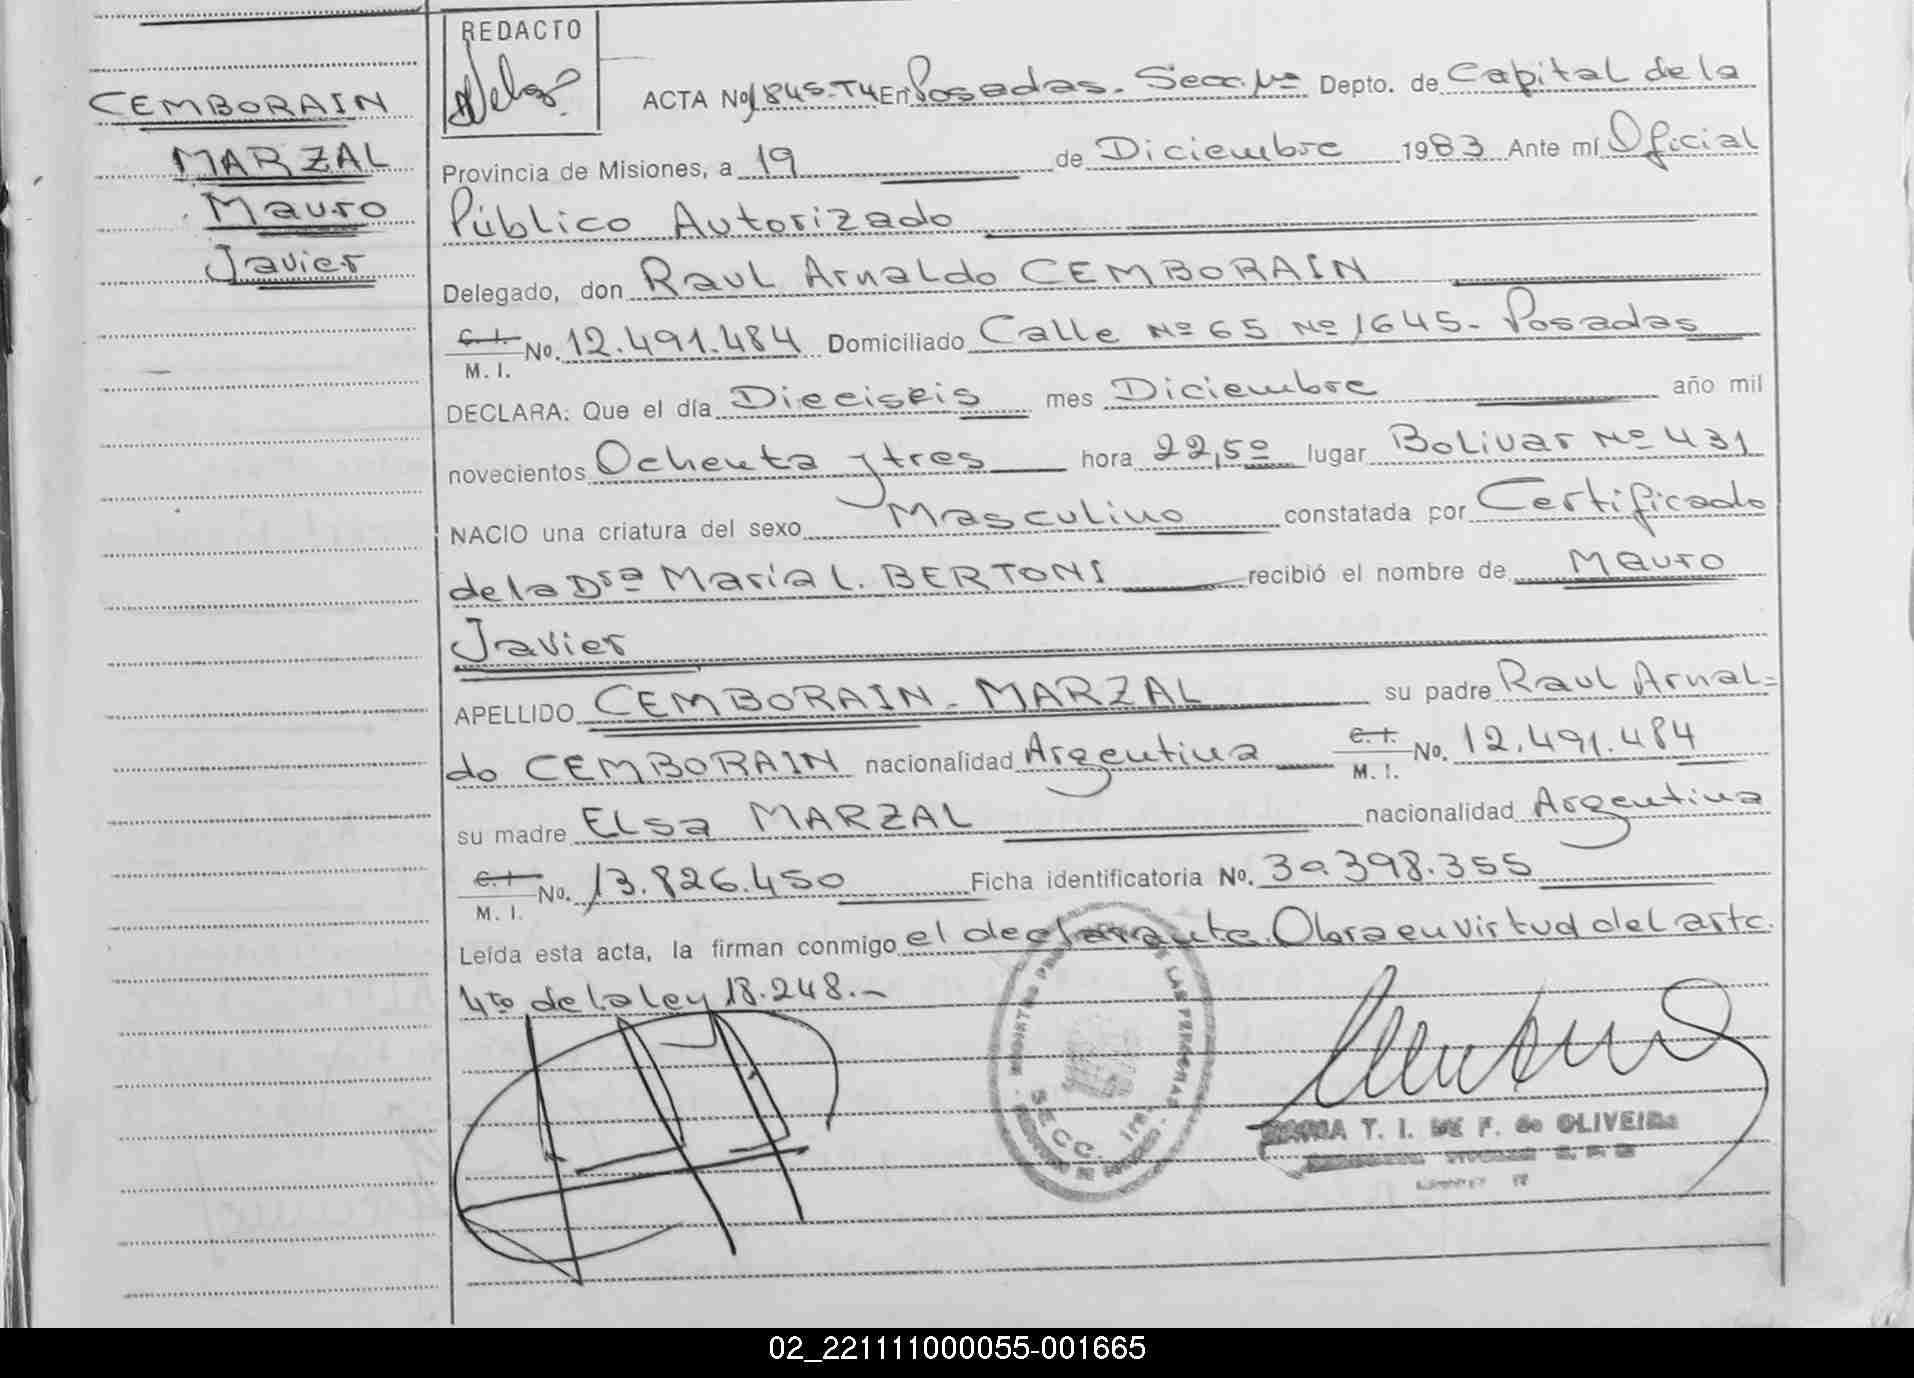 REDACTO
CEMBORAIN
MARZAL
Mauro
Javier
ACTA No 1845-T4 En Posadas. Secc. 1ra Depto. de Capital de la
Provincia de Misiones, a 19 de Diciembre 1983 Ante mí Oficial
Público Autorizado
Delegado, don Raul Arnaldo CEMBORAIN
C.I. M. I. No. 12.491.484 Domiciliado Calle Nº 65 Nº 1645- Posadas
DECLARA: Que el día Dieciseis mes Diciembre año mil
novecientos Ochenta y tres hora 22,50 lugar Bolivar Nº 431
NACIO una criatura del sexo Masculino constatada por Certificado
de la Dra María L. BERTONI recibió el nombre de Mauro
Javier
APELLIDO CEMBORAIN-MARZAL su padre Raul Arnal=
do CEMBORAIN nacionalidad Argentina C.I. M. I. No. 12.491.484
su madre Elsa MARZAL nacionalidad Argentina
C.I. M. I. No. 13.826.450 Ficha identificatoria No. 30.398.355
Leída esta acta, la firman conmigo el declarante. Obra en virtud del artc.
4to de la ley 18.248.-
DE LAS PERSONAS
SECC. 1ra.
T. I. DE F. de OLIVEIRA
02_221111000055-001665